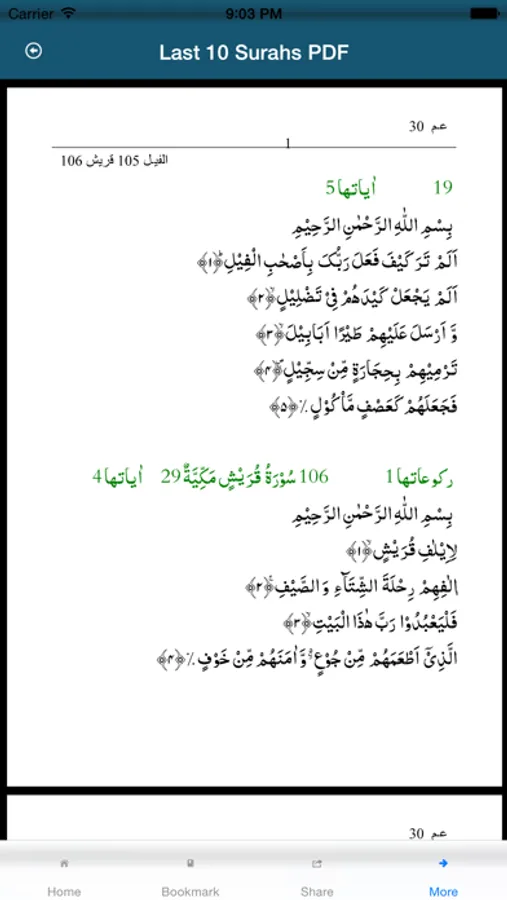 Carrier 9:03 PM
Last 10 Surahs PDF
عم 30
1
الفيل 105 قريش 106
19 اٰياتها 5
بِسْمِ اللّٰهِ الرَّحْمٰنِ الرَّحِيْمِ
اَلَمْ تَرَ كَيْفَ فَعَلَ رَبُّكَ بِاَصْحٰبِ الْفِيْلِؕ﴿۱﴾
اَلَمْ يَجْعَلْ كَيْدَهُمْ فِيْ تَضْلِيْلٍۙ﴿۲﴾
وَّ اَرْسَلَ عَلَيْهِمْ طَيْرًا اَبَابِيْلَۙ﴿۳﴾
تَرْمِيْهِمْ بِحِجَارَةٍ مِّنْ سِجِّيْلٍ۪ۙ﴿۴﴾
فَجَعَلَهُمْ كَعَصْفٍ مَّاْكُوْلٍ٪﴿۵﴾
ركوعاتها 1 106 سُوْرَةُ قُرَيْشٍ مَكِّيَّةٌ 29 اٰياتها 4
بِسْمِ اللّٰهِ الرَّحْمٰنِ الرَّحِيْمِ
لِاِيْلٰفِ قُرَيْشٍۙ﴿۱﴾
اٖلٰفِهِمْ رِحْلَةَ الشِّتَآءِ وَ الصَّيْفِۚ﴿۲﴾
فَلْيَعْبُدُوْا رَبَّ هٰذَا الْبَيْتِۙ﴿۳﴾
الَّذِيْۤ اَطْعَمَهُمْ مِّنْ جُوْعٍ ۙ۬ وَّ اٰمَنَهُمْ مِّنْ خَوْفٍ٪﴿۴﴾
عم 30
Home Bookmark Share More